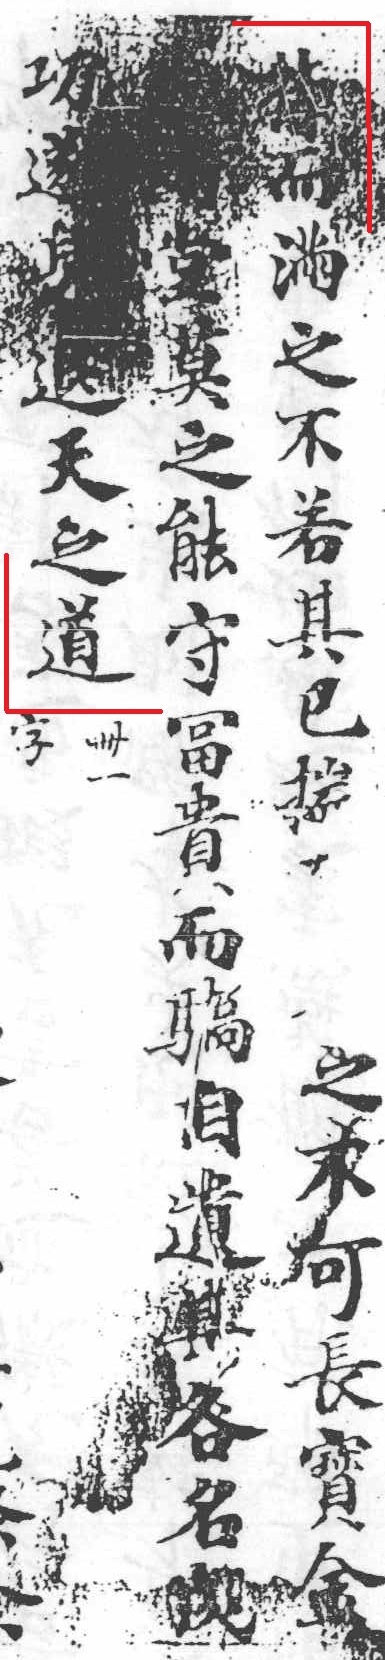 而滿之不若其已揣 之求可長寶金
室莫之能守冨貴而驕自遺其咎名成
功遂身退天之道
卌一
字